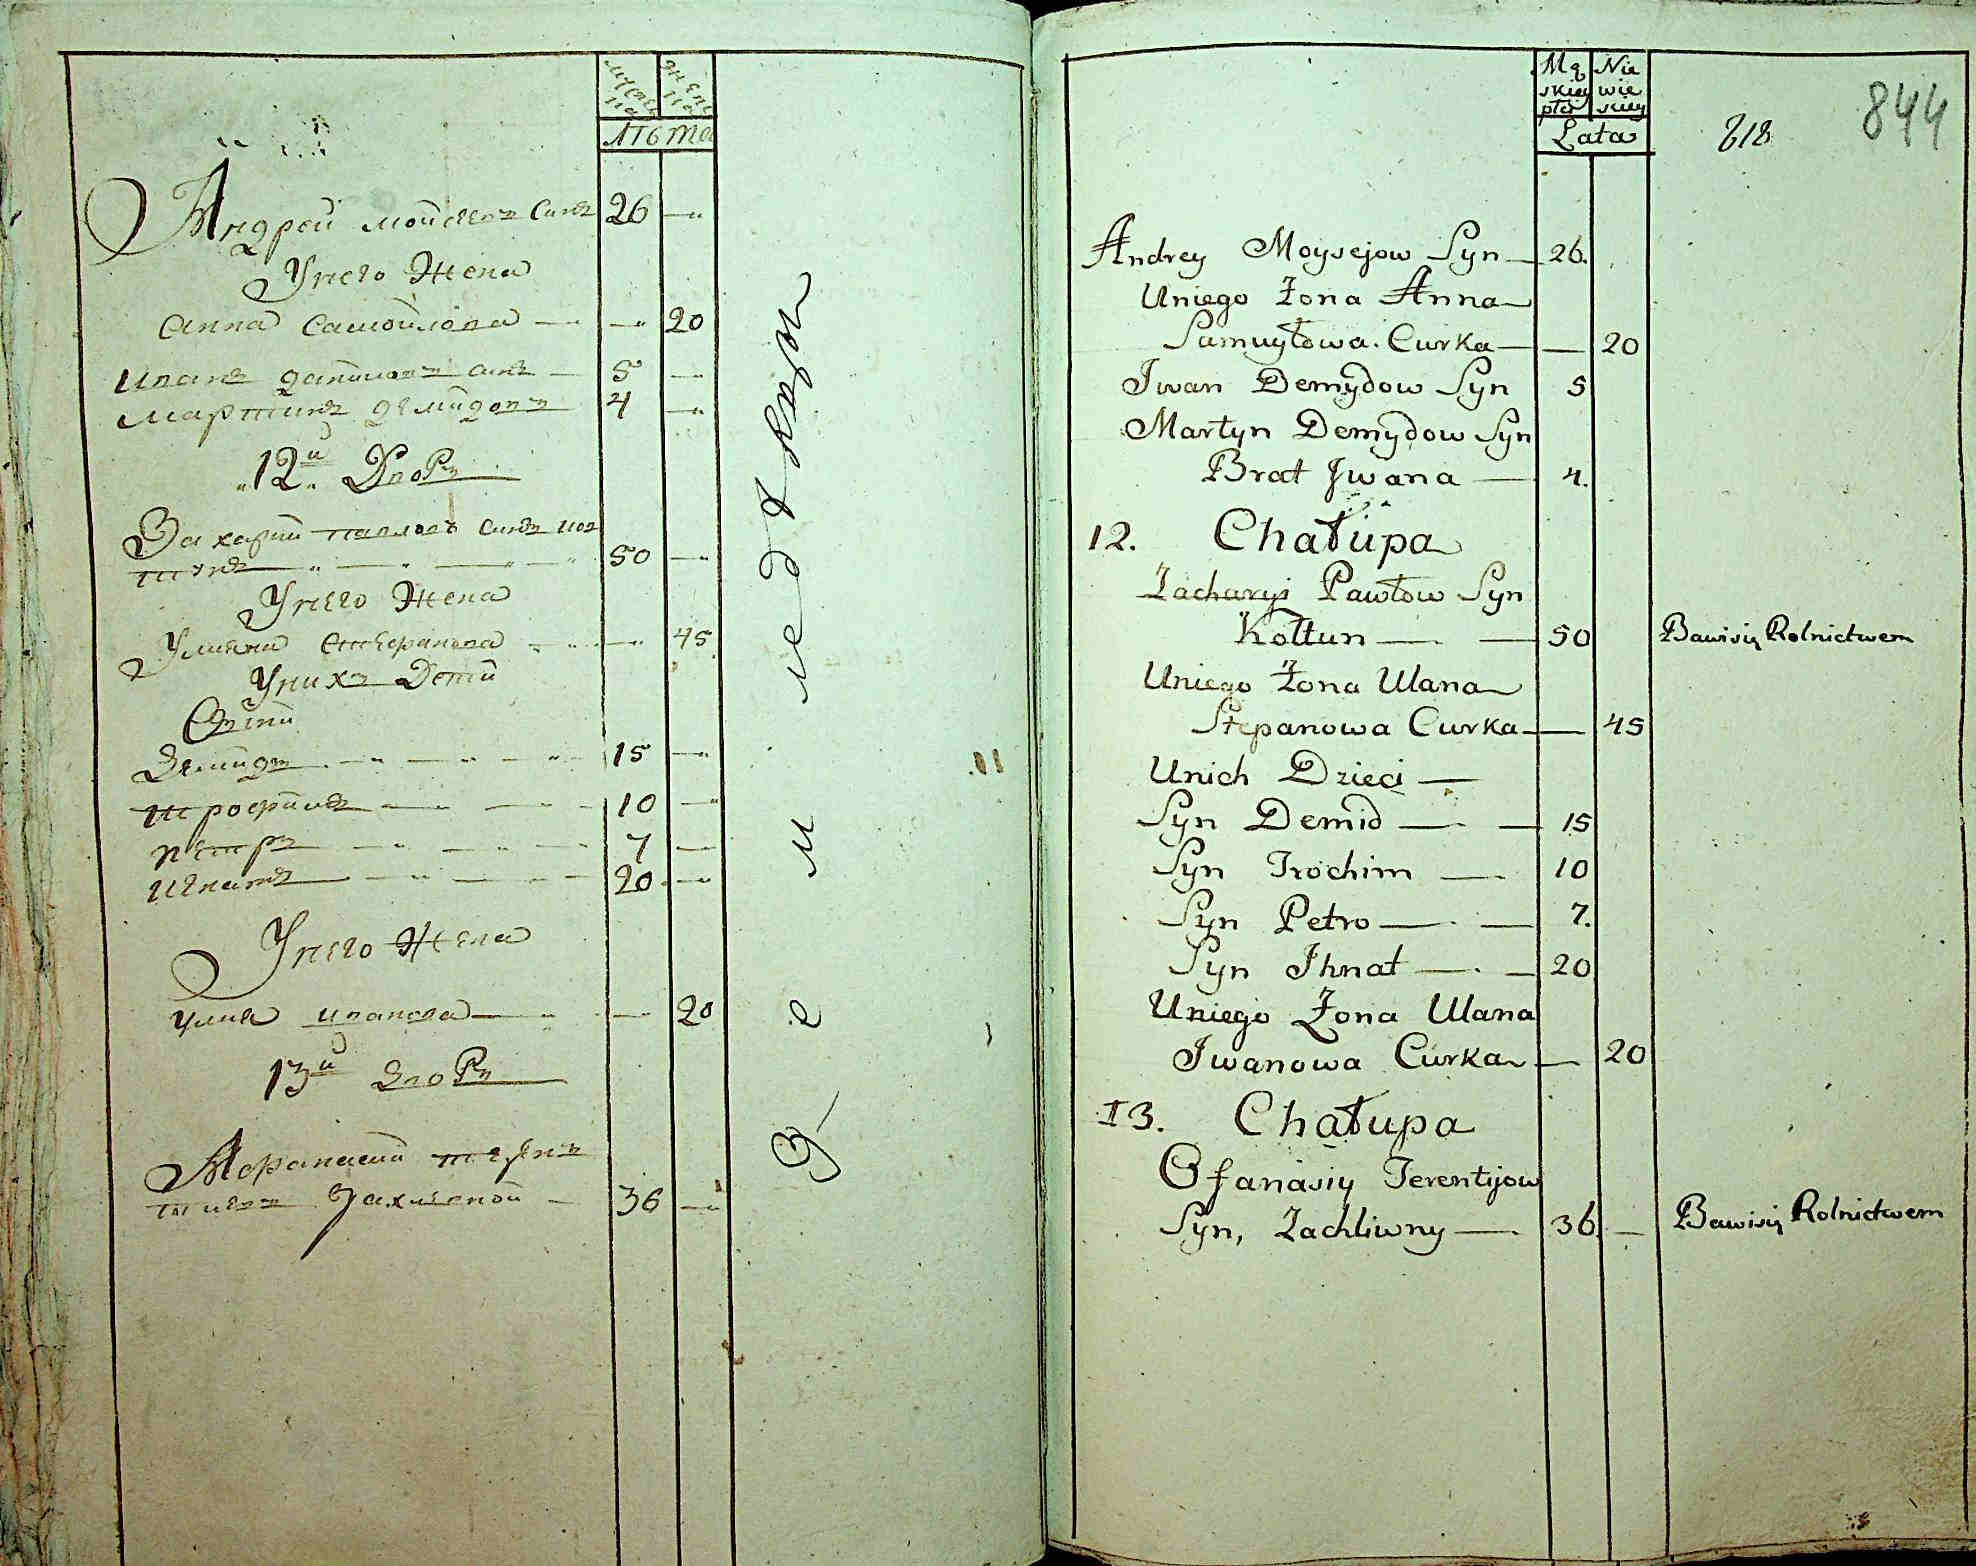 мужеска
женска
лѣта
Андрей мойсеевъ синъ 26
Унего Жена
анна самойлова 20
иванъ данилов синъ 5
мартинъ демидовъ 4
12й Дворъ
Захарий павловъ синъ кол
тунъ 50
Унего Жена
Улияна степанова 45
Уних Дети
Сыни
Демидъ 15
трофимъ 10
петръ 7
игнатъ 20
Унего Жена
улия иванова 20
13й Дворъ
Афанасий терен
тиевъ Захливной 36
Mę
skiey
płci
Nie
wie
sciey
Lata
818
844
Andrey Moysejow Syn 26.
Uniego Żona Anna
Samuyłowa Curka 20
Jwan Demydow Syn 5
Martyn Demydow Syn
Brat Jwana 4.
12. Chałupa
Zacharyi Pawłow Syn
Kołtun 50 Bawisię Rolnictwem
Uniego Żona Ulana
Stepanowa Curka 45
Unich Dzieci
Syn Demid 15
Syn Trochim 10
Syn Petro 7.
Syn Jhnat 20
Uniego Żona Ulana
Jwanowa Curka 20
13. Chałupa
Ofanasiy Terentijow
Syn, Zachliwny 36 Bawisię Rolnictwem